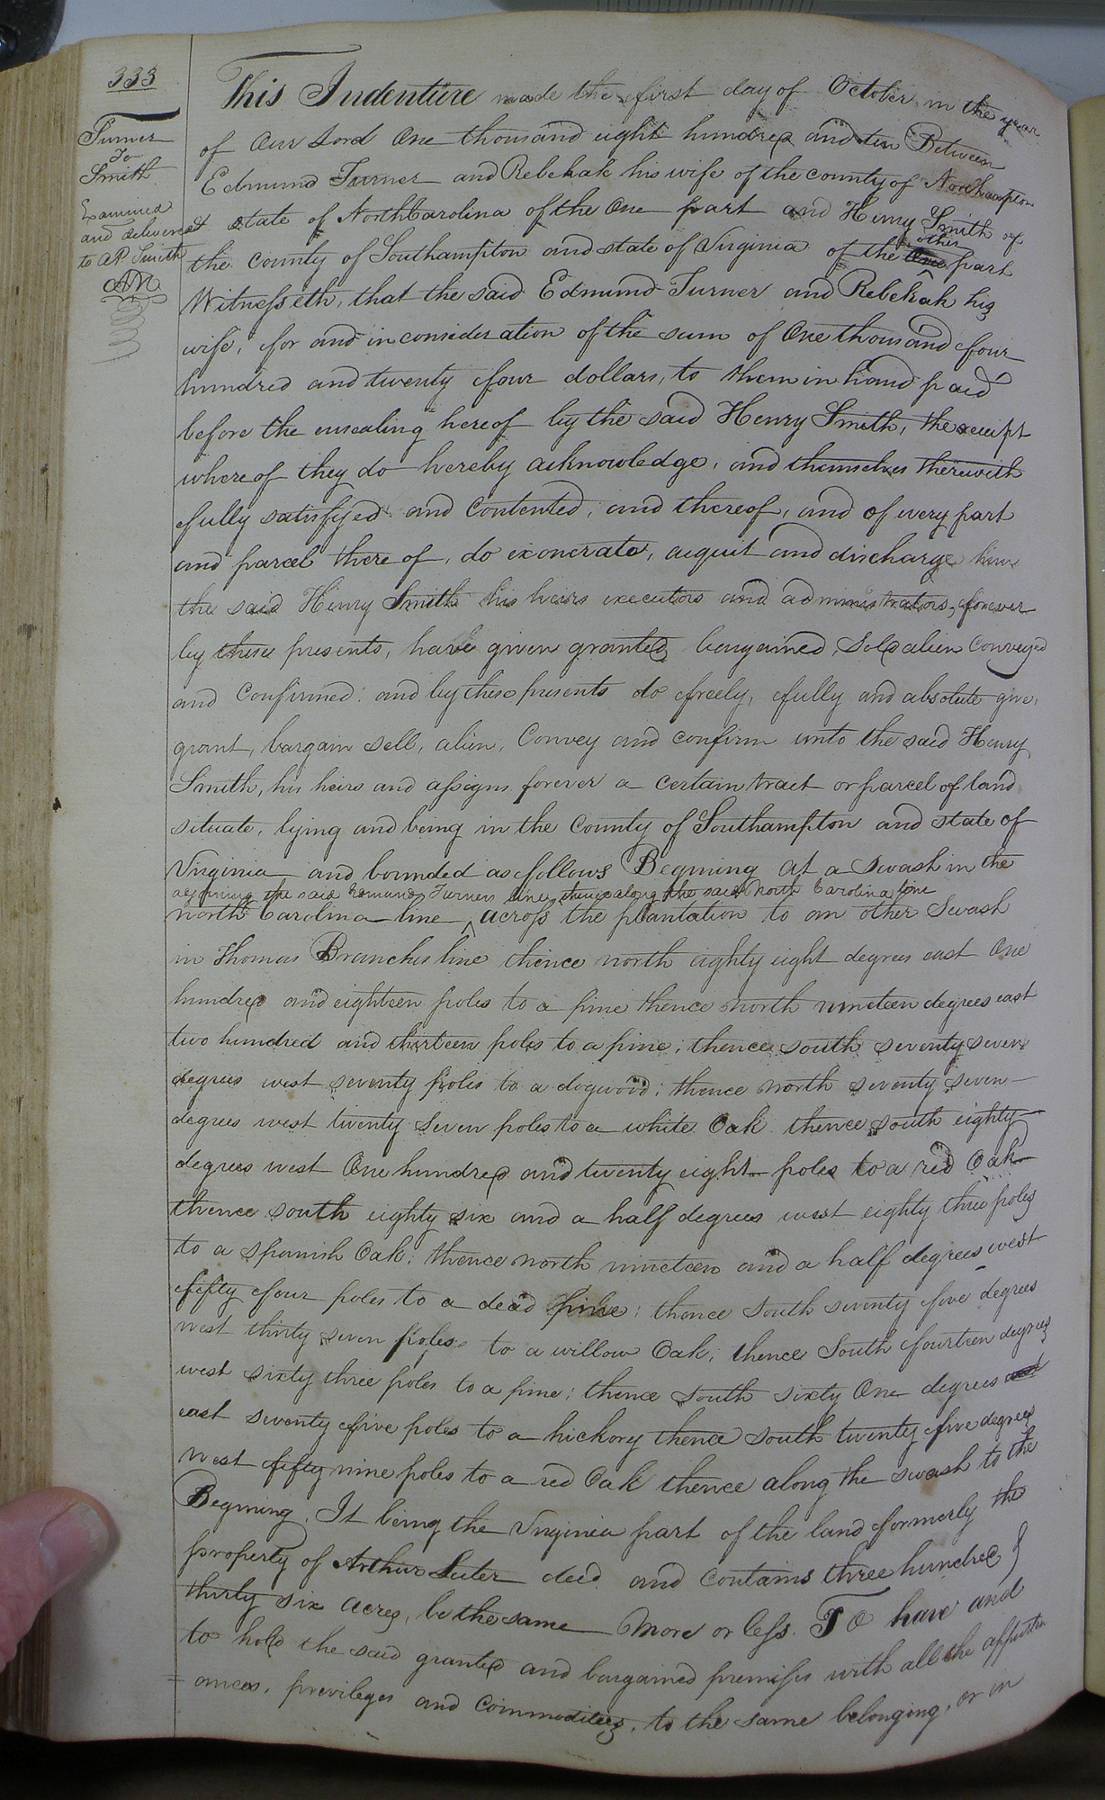 333
Turner
To
Smith
Examined
and delivered
to AP Smith
This Indenture made the first day of October in the year
of Our Lord One thousand eight hundred and ten Between
Edmund Turner and Rebekah his wife of the county of Northampton
& state of North Carolina of the One part and Henry Smith of
the County of Southampton and state of Virginia of the other part
Witnesseth, that the said Edmund Turner and Rebekah his
wife, for and in consideration of the sum of One thousand four
hundred and twenty four dollars, to them in hand paid
before the ensealing hereof by the said Henry Smith, the receipt
whereof they do hereby acknowledge, and themselves therewith
fully satisfyed and Contented, and thereof, and of every part
and parcel there of, do exonerate, acquit and discharge him
the said Henry Smith his heirs executors and administrators, forever
by these presents, have given granted bargained Sold alien Conveyed
and Confirmed: and by these presents do freely, fully and absolute give,
grant, bargain sell, alien, Convey and confirm unto the said Henry
Smith, his heirs and assigns forever a certain tract or parcel of land
situate, lying and being in the County of Southampton and state of
Virginia and bounded as follows Begining at a Swash in the
ajoining the said Edmund Turners line, thence along the said North Carolina line
north Carolina line across the plantation to an other Swash
in Thomas Branches line thence north eighty eight degrees east One
hundred and eighteen poles to a pine thence North nineteen degrees east
two hundred and thirteen poles to a pine; thence south seventy seven
degrees west seventy poles to a dogwood; thence North seventy seven
degrees west twenty Seven poles to a white Oak thence south eighty
degrees west One hundred and twenty eight poles to a red Oak
thence south eighty six and a half degrees west eighty three poles
to a spanish Oak; thence North nineteen and a half degrees west
fifty four poles to a dead pine; thence South seventy five degrees
west thirty seven poles to a willow Oak; thence South fourteen degrees
west sixty three poles to a pine; thence South sixty One degrees
east seventy five poles to a hickory thence South twenty five degrees
West fifty nine poles to a red Oak thence along the swash to the
Begining. It being the Virginia part of the land formerly the
property of Arthur Suter decd and contains three hundred
thirty six acres, be the same More or less. To have and
to hold the said granted and bargained premises with all the appurten
= ances, previleges and Commodities, to the same belonging, or in